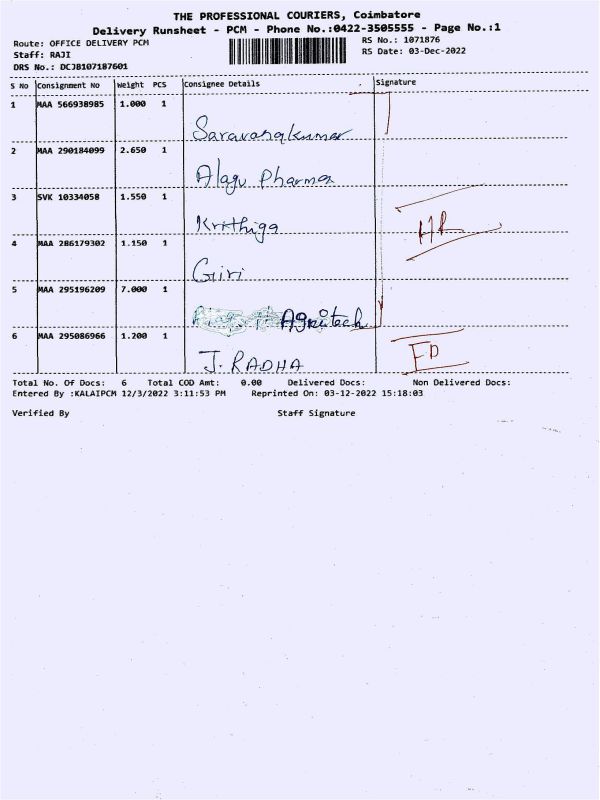 THE PROFESSIONAL COURIERS, Coimbatore
Delivery Runsheet - PCM - Phone No.:0422-3505555 - Page No.:1
Route: OFFICE DELIVERY PCM
RS No.: 1071876
Staff: RAJI
RS Date: 03-Dec-2022
DRS No.: DCJB107187601
S No Consignment No Weight PCS Consignee Details Signature
1 MAA 566938985 1.000 1
Saravanakumar
2 MAA 290184099 2.650 1
Alagu Pharma
3 SVK 10334058 1.550 1
Krithiga
HR
4 MAA 286179302 1.150 1
Giri
5 MAA 295196209 7.000 1
Agritech
6 MAA 295086966 1.200 1
J. RADHA
FD
Total No. Of Docs: 6 Total COD Amt: 0.00 Delivered Docs: Non Delivered Docs:
Entered By :KALAIPCM 12/3/2022 3:11:53 PM Reprinted On: 03-12-2022 15:18:03
Verified By Staff Signature